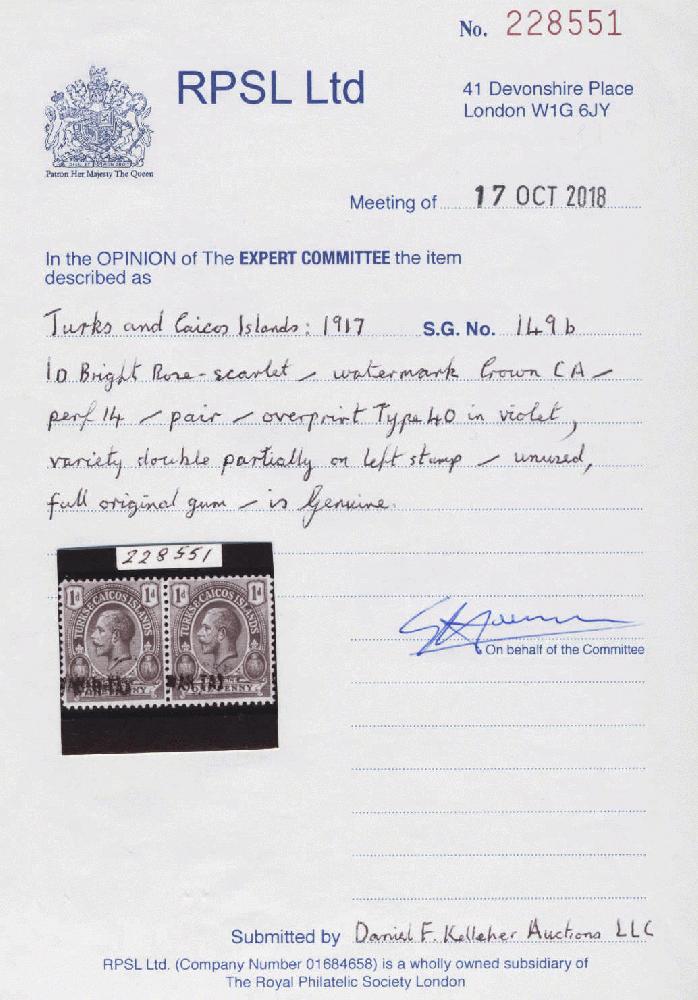 No. 228551
RPSL Ltd
41 Devonshire Place
London W1G 6JY
Patron Her Majesty The Queen
Meeting of 17 OCT 2018
In the OPINION of The EXPERT COMMITTEE the item
described as
Turks and Caicos Islands: 1917 S.G. No. 149b
1D Bright Rose-scarlet - watermark Crown CA -
perf 14 - pair - overprint Type 40 in violet,
variety double partially on left stamp - unused,
full original gum - is Genuine.
228551
1d 1d 1d 1d
TURKS & CAICOS ISLANDS TURKS & CAICOS ISLANDS
WAR TAX WAR TAX
PENNY
On behalf of the Committee
Submitted by Daniel F. Kelleher Auctions LLC
RPSL Ltd. (Company Number 01684658) is a wholly owned subsidiary of
The Royal Philatelic Society London